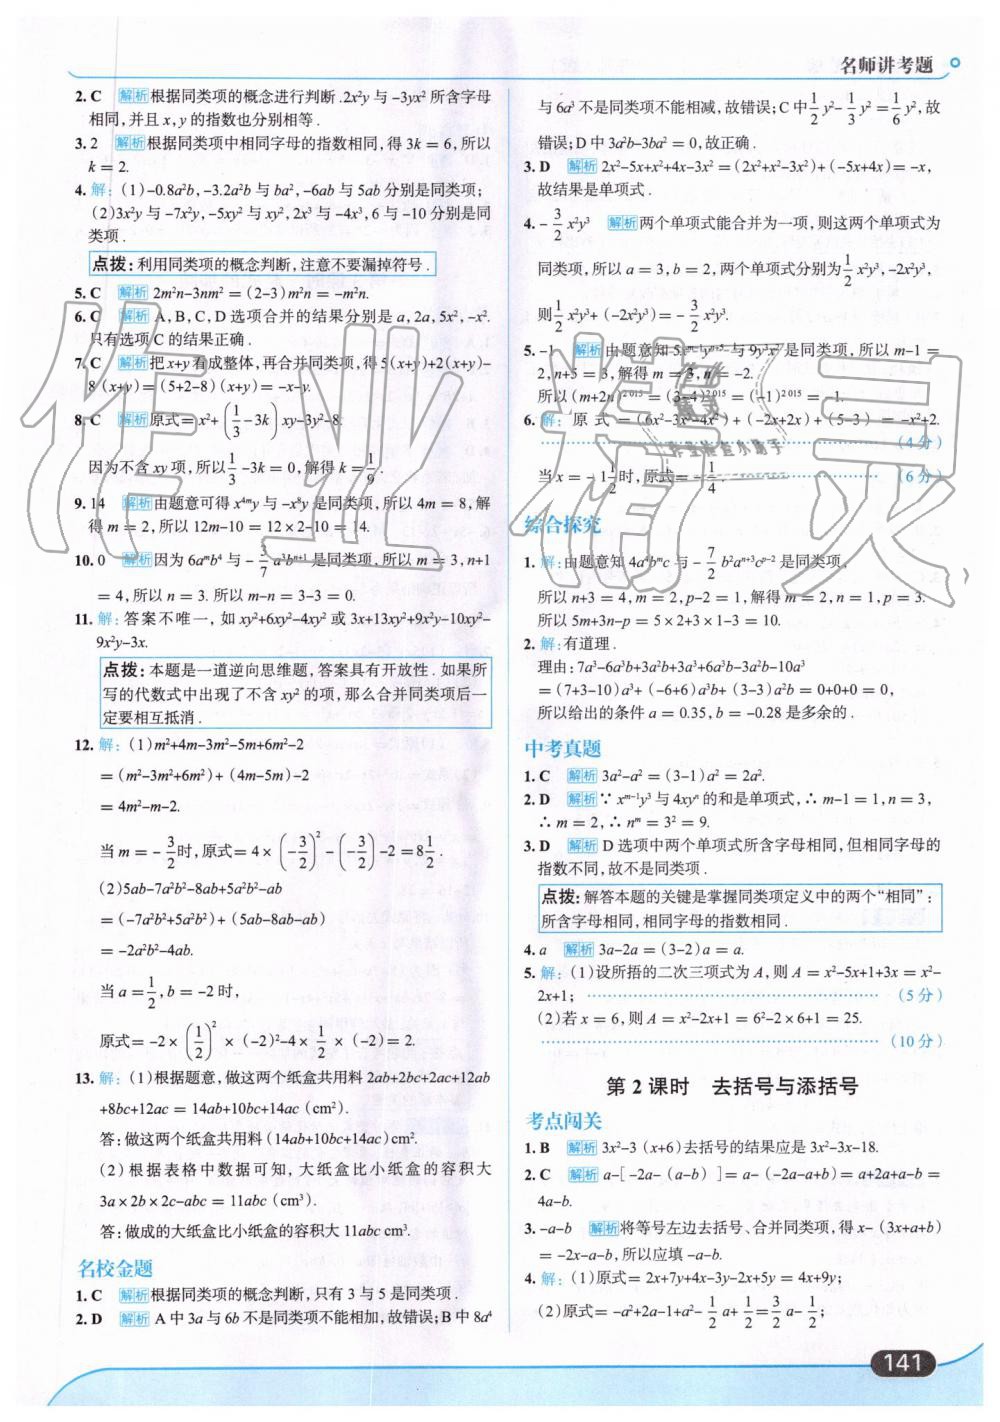 名师讲考题
2. C 解析 根据同类项的概念进行判断.2x²y与-3yx²所含字母
相同,并且x,y的指数也分别相等.
3. 2 解析 根据同类项中相同字母的指数相同,得3k=6,所以
k=2.
4. 解:(1)-0.8a²b,-3.2a²b与ba²,-6ab与5ab分别是同类项;
(2)3x²y与-7x²y,-5xy²与xy²,2x³与-4x³,6与-10分别是同
类项.
点拨:利用同类项的概念判断,注意不要漏掉符号.
5. C 解析 2m²n-3nm²=(2-3)m²n=-m²n.
6. C 解析 A,B,C,D选项合并的结果分别是a,2a,5x²,-x².
只有选项C的结果正确.
7. C 解析 把x+y看成整体,再合并同类项,得5(x+y)+2(x+y)-
8(x+y)=(5+2-8)(x+y)=-x-y.
8. C 解析 原式=x²+(1/3-3k)xy-3y²-8.
因为不含xy项,所以1/3-3k=0,解得k=1/9.
9. 14 解析 由题意可得x⁴ᵐy与-x⁸y是同类项,所以4m=8,解
得m=2,所以12m-10=12×2-10=14.
10. 0 解析 因为6aᵐb⁴与-3/7a³bⁿ⁺¹是同类项,所以m=3,n+1
=4,所以n=3.所以m-n=3-3=0.
11. 解:答案不唯一,如xy²+6xy²-4xy²或3x+13xy²+9x²y-10xy²-
9x²y-3x.
点拨:本题是一道逆向思维题,答案具有开放性.如果所
写的代数式中出现了不含xy²的项,那么合并同类项后一
定要相互抵消.
12. 解:(1)m²+4m-3m²-5m+6m²-2
=(m²-3m²+6m²)+(4m-5m)-2
=4m²-m-2.
当m=-3/2时,原式=4×(-3/2)²-(-3/2)-2=8 1/2.
(2)5ab-7a²b²-8ab+5a²b²-ab
=(-7a²b²+5a²b²)+(5ab-8ab-ab)
=-2a²b²-4ab.
当a=1/2,b=-2时,
原式=-2×(1/2)²×(-2)²-4×1/2×(-2)=2.
13. 解:(1)根据题意,做这两个纸盒共用料2ab+2bc+2ac+12ab
+8bc+12ac=14ab+10bc+14ac(cm²).
答:做这两个纸盒共用料(14ab+10bc+14ac)cm².
(2)根据表格中数据可知,大纸盒比小纸盒的容积大
3a×2b×2c-abc=11abc(cm³).
答:做成的大纸盒比小纸盒的容积大11abc cm³.
名校金题
1. C 解析 根据同类项的概念判断,只有3与5是同类项.
2. D 解析 A中3a与6b不是同类项不能相加,故错误;B中8a⁴
与6a³不是同类项不能相减,故错误;C中1/2y²-1/3y²=1/6y²,故
错误;D中3a²b-3ba²=0,故正确.
3. D 解析 2x²-5x+x²+4x-3x²=(2x²+x²-3x²)+(-5x+4x)=-x,
故结果是单项式.
4. -3/2x²y³ 解析 两个单项式能合并为一项,则这两个单项式为
同类项,所以a=3,b=2,两个单项式分别为1/2x²y³,-2x²y³,
则1/2x²y³+(-2x²y³)=-3/2x²y³.
5. -1 解析 由题意知5xᵐ⁻¹yⁿ⁺⁵与9y³x²是同类项,所以m-1=
2,n+5=3,解得m=3,n=-2.
所以(m+2n)²⁰¹⁵=(3-4)²⁰¹⁵=(-1)²⁰¹⁵=-1.
6. 解:原式=(6x²-3x²-4x²)+(-2x+2x)+(5-3)=-x²+2.
(4分)
当x=-1 1/2时,原式=-1/4. (6分)
综合探究
1. 解:由题意知4a⁴bᵐc与-7/2b²aⁿ⁺³cᵖ⁻²是同类项,
所以n+3=4,m=2,p-2=1,解得m=2,n=1,p=3.
所以5m+3n-p=5×2+3×1-3=10.
2. 解:有道理.
理由:7a³-6a³b+3a²b+3a³+6a³b-3a²b-10a³
=(7+3-10)a³+(-6+6)a³b+(3-3)a²b=0+0+0=0,
所以给出的条件a=0.35,b=-0.28是多余的.
中考真题
1. C 解析 3a²-a²=(3-1)a²=2a².
2. D 解析 ∵xᵐ⁻¹y³与4xyⁿ的和是单项式,∴m-1=1,n=3,
∴m=2,∴nᵐ=3²=9.
3. D 解析 D选项中两个单项式所含字母相同,但相同字母的
指数不同,故不是同类项.
点拨:解答本题的关键是掌握同类项定义中的两个“相同”:
所含字母相同,相同字母的指数相同.
4. a 解析 3a-2a=(3-2)a=a.
5. 解:(1)设所捂的二次三项式为A,则A=x²-5x+1+3x=x²-
2x+1; (5分)
(2)若x=6,则A=x²-2x+1=6²-2×6+1=25.
(10分)
第2课时 去括号与添括号
考点闯关
1. B 解析 3x²-3(x+6)去括号的结果应是3x²-3x-18.
2. C 解析 a-[-2a-(a-b)]=a-(-2a-a+b)=a+2a+a-b=
4a-b.
3. -a-b 解析 将等号左边去括号、合并同类项,得x-(3x+a+b)
=-2x-a-b,所以应填-a-b.
4. 解:(1)原式=2x+7y+4x-3y-2x+5y=4x+9y;
(2)原式=-a²+2a-1+a²-1/2a+1/2=3/2a-1/2;
141
作业精灵